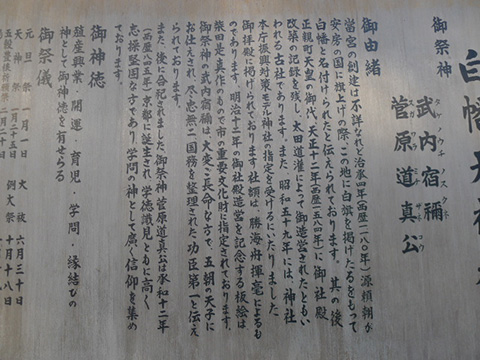 白幡天神
御祭神
武内宿禰
タケノウチスクネ
菅原道真公
スガワラミチザネコウ
御由緒
当宮の創建は不詳なれど治承四年(西歴一一八〇年)源頼朝が
安房の国に旗上げの際、この地に白旗を掲げたるをもって
白幡と名付けられたと伝えられております。其の後
正親町天皇の御代、天正十二年(西歴一五八四年)に御社殿
改築の記録を残し、太田道灌によって御造営されたともい
われる古社であります。また、昭和五十九年には、神社
本庁振興対策モデル神社の指定を受けるにいたりました
御拝殿に掲げられております社額は、勝海舟揮毫によるも
のであります。明治十三年の御社殿造営を記念する板絵は
柴田是真作のもので市の重要文化財に指定されております。
御祭神の武内宿禰は、大変ご長命な方で、五朝の天子に
お仕えされ、尽忠無二国務を整理された功臣第一と伝え
られております。
また、後に合祀されました、御祭神菅原道真公は承和十二年
(西歴八四五年)京都に誕生され、学徳識見ともに高く
忠操堅固な方であり、学問の神として廣く信仰を集め
ております。
御神徳
殖産興業・開運・育児・学問・縁結びの
神として御神徳を有せらる
御祭儀
元旦祭 一月一日 大祓 六月三十日
天神祭 一月二十五日 例大祭 十月十八日
五穀豊穣祈願祭 二月二十日